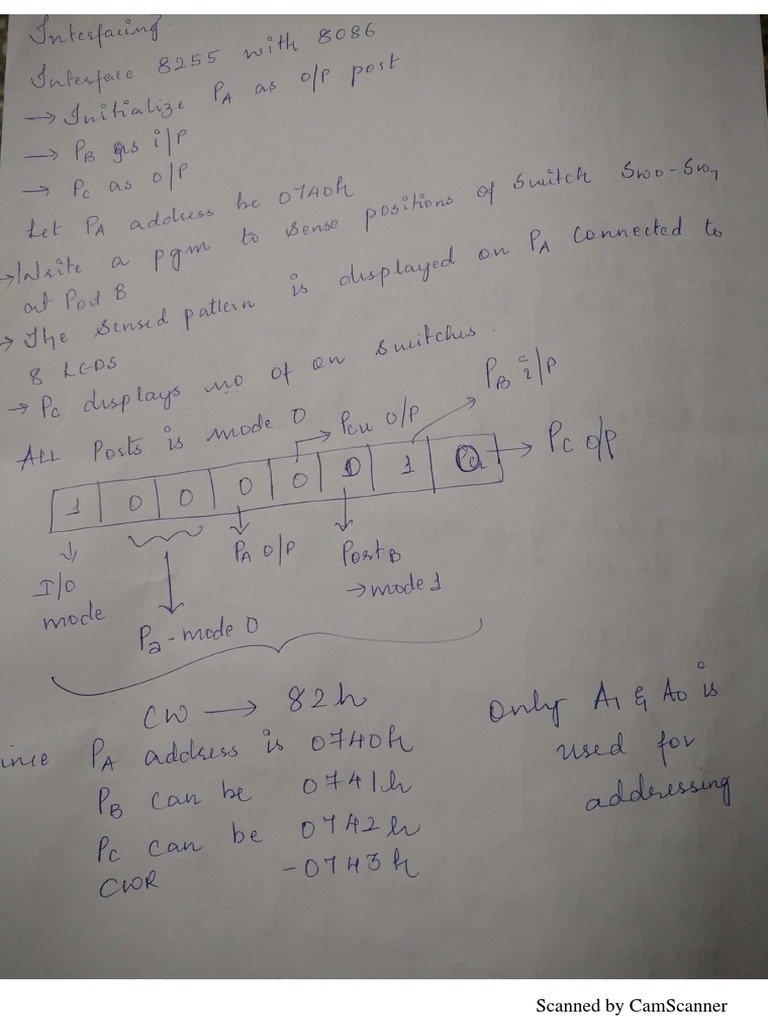 Interfacing.
Interface 8255 with 8086
→ Initialize PA as o/p port
→ PB as i/p
→ Pc as o/p
Let PA address be 0740h
→ Write a pgm to sense positions of switch SW0-SW7
at Port B
→ The sensed pattern is displayed on PA connected to
8 LEDS
→ Pc displays no of on switches.
ALL Ports is mode 0
Pcu O/P
PB i/p
1 0 0 0 0 0 1 0
Pc o/p
I/O
mode
Pa-mode 0
PA O/P
Port B
→ mode 1
CW → 82h
ince PA address is 0740h
PB can be 0741h
Pc can be 0742h
CWR -0743h
Only A1 & A0 is
used for
addressing
Scanned by CamScanner